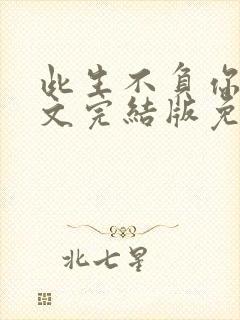 此生不負你
文完結版免
北七星